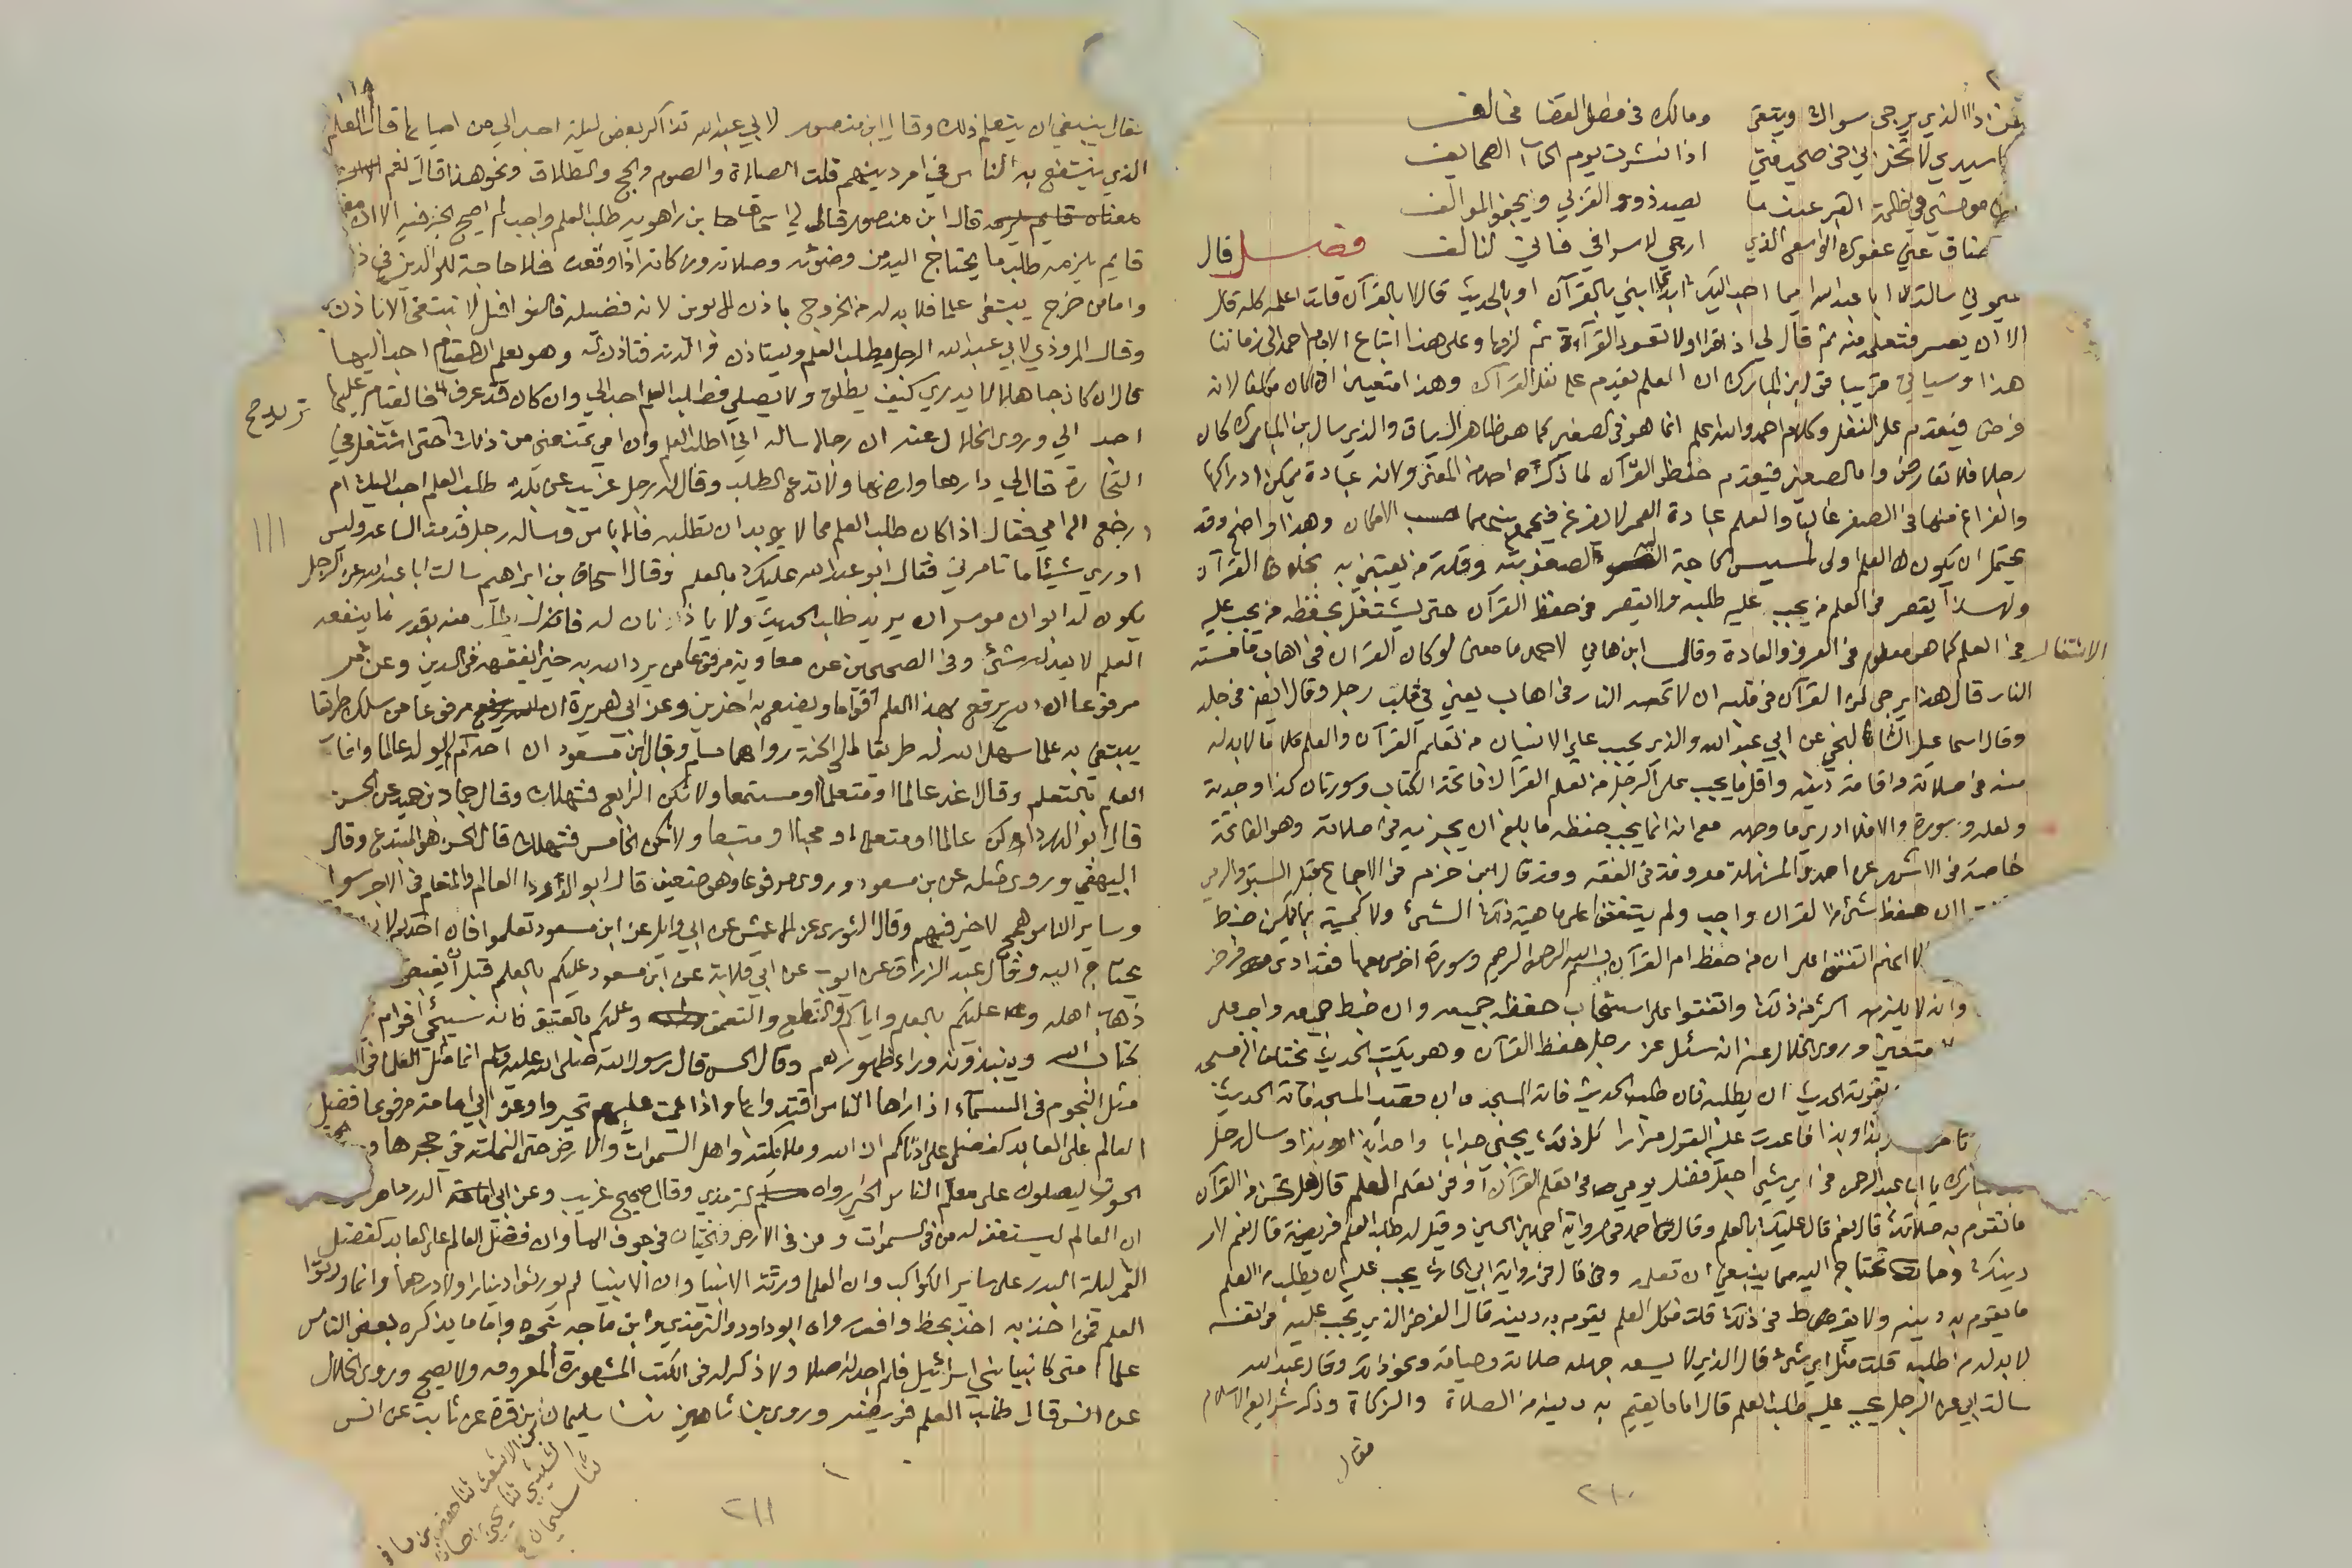 فمن ذا الذي يرجى سواك ويتقى ومالك في فصل القضا مخالف
يا سيدي لا تخزني في صحيفتي اذا نشرت يوم الحساب الصحايف
موحشي في ظلمة القبر عندما يصد ذوو القربى ويجفو الموالف
ضاق عني عفوك الواسع الذي ارجي لاسرافي فاني لتالف فصل قال
الميموني سالت ابا عبد الله ايما احب اليك ابدا ابني بالقرآن او بالحديث قال لا بالقرآن قلت اعلمه كله قال
الا ان يعسر فتعلمه منه ثم قال لي اذا قرا اولا تعود القراءة ثم لزمها وعلى هذا اتباع الامام احمد الى زماننا
هذا وسياتي قريبا قول ابن المبارك ان العلم يقدم على نفل القرآن وهذا متعين ان كان مكلفا لانه
فرض فيقدم على النفل وكلام احمد والله اعلم انما هو في الصغير كما هو ظاهر السياق والذي سال ابن المبارك كان
رجلا فلا تعارض واما الصغير فيقدم حفظ القرآن لما ذكره احمد من المعنى ولانه عبادة يمكن ادراكها
والفراغ منها في الصغر غالبا والعلم عبادة العمر لا يفرغ فيجمع بينهما حسب الامكان وهذا واضح وقد
يحتمل ان يكون العلم اولى لمسيس الحاجة اليه لصعوبته وقلة من يعتني به بخلاف القرآن
ولهذا يقصر في العلم من يجب عليه طلبه ولا يقصر في حفظ القرآن حتى يشتغل بحفظه من يجب عليه
الاشتغال في العلم كما هو معلوم في العرف والعادة وقال ابن هاني لاحمد ما معنى لو كان القرآن في اهاب ما مسته
النار قال هذا يرجى لمن القرآن في قلبه ان لا تمسه النار في اهاب يعني في قلب رجل وقال ايضا في جلد
وقال اسماعيل الشالنجي عن ابي عبد الله والذي يجب على الانسان من تعلم القرآن والعلم ما لا بد له
منه في صلاته واقامة دينه واقل ما يجب على الرجل من تعلم القرآن فاتحة الكتاب وسورتان كذا وجدته
ولعله وسورة والا فلا ادري ما وجهه مع انه انما يجب حفظه ما بلغ ان يجزيه في صلاته وهو الفاتحة
خاصة في الاشهر عن احمد والمسئلة معروفة في الفقه وقد قال ابن حزم في الاجماع قبل السبق والرمي
ان حفظ شئ من القرآن واجب ولم يتفقوا على ماهية ذلك الشئ ولا كميته بما يمكن ضبط
الا انهم اتفقوا على ان من حفظ ام القرآن بسم الله الرحمن الرحيم وسورة اخرى معها فقد ادى فرض
وانه لا يلزمه اكثر من ذلك واتفقوا على استحباب حفظ جميعه وان ضبط جميعه واجب على
متعين وروى الخلال عنه انه سئل عن رجل حفظ القرآن وهو يكتب الحديث يختلف الى مسجد
يفوته الحديث ان يطلبه فان طلب الحديث فاته المسجد وان قصد المسجد فاته الحديث
بذا وبذا فاعدت عليه القول مرارا كل ذلك يجيبني جوابا واحدا بذا وبذا وسال رجل
يا ابا عبد الرحمن في اي شئ اجعل فضل يومي في تعلم القرآن او في تعلم العلم قال هل تحسن من القرآن
ما تقوم به صلاتك قال نعم قال عليك بالعلم وقال احمد في رواية احمد بن الحسين وقيل له طلب العلم فريضة قال نعم لامر
دينك وما تحتاج اليه مما ينبغي ان تعلمه وقال في رواية ابي الحارث يجب عليه ان يطلب من العلم
ما يقوم به دينه ولا يفرط في ذلك قلت فكل العلم يقوم به دينه قال الفرض الذي يجب عليه في نفسه
لا بد له من طلبه قلت مثل اي شئ قال الذي لا يسعه جهله صلاته وصيامه ونحو ذلك وقال عبد الله
سالت ابي عن الرجل يجب عليه طلب العلم قال اما ما يقيم به دينه من الصلاة والزكاة وذكر شرايع الاسلام
فقال
٢١٠
١١٨
فقال ينبغي ان يتعلم ذلك وقال ابن منصور لابي عبد الله تذاكر بعض ليلة احب الي من احيائها قال العلم
الذي ينتفع به الناس في امر دينهم قلت الصلاة والصوم والحج والطلاق ونحو هذا قال نعم
قال ابن منصور قال لي اسحاق بن راهويه طلب العلم واجب لم يصح الخبر فيه الا ان معناه
قايم يلزمه طلب ما يحتاج اليه من وضوئه وصلاته وزكاته اذا وقعت فلا حاجة للوالدين في ذ
واما من خرج يبتغي علما فلا بد له من الخروج باذن الابوين لانه فضيلة فالنوافل لا تبتغى الا باذن
وقال المروذي لابي عبد الله الرجل يطلب العلم ويستاذن والدته فتاذن له وهو يعلم ان المقام احب اليها
قال ان كان جاهلا لا يدري كيف يطلق ولا يصلي فطلب العلم احب الي وان كان قد عرف فالمقام عليها
احب الي وروى الخلال عنه ان رجلا ساله اني اطلب العلم وان امي تمنعني من ذلك حتى اشتغل في
التجارة قال لي دارها وارضها ولا تدع الطلب وقال له رجل غريب عن بلده طلب العلم احب اليك ام
ارجع الى امي فقال اذا كان طلب العلم مما لا بد ان تطلبه فلا باس وساله رجل قدمت الساعة وليس
ادري شيئا ما تامرني فقال ابو عبد الله عليك بالعلم وقال اسحاق بن ابراهيم سالت ابا عبد الله عن الرجل
يكون له ابوان موسران يريد طلب الحديث ولا ياذنان له قال يطلب منه بقدر ما ينفعه
العلم لا يعدله شئ وفي الصحيحين عن معاوية مرفوعا من يرد الله به خيرا يفقهه في الدين وعن عمر
مرفوعا ان الله يرفع بهذا العلم اقواما ويضع به اخرين وعن ابي هريرة مرفوعا من سلك طريقا
يبتغي به علما سهل الله له طريقا الى الجنة رواهما مسلم وقال ابن مسعود ان احدكم لم يولد عالما وانما
العلم بالتعلم وقال اغد عالما او متعلما او مستمعا ولا تكن الرابع فتهلك وقال حماد بن حميد عن الحسن
قال ابو الدرداء كن عالما او متعلما او محبا او متبعا ولا تكن الخامس فتهلك قال الحسن هو المبتدع وقال
البيهقي وروي مثله عن ابن مسعود وروي مرفوعا وهو ضعيف قال ابو الدرداء العالم والمتعلم في الاجر سواء
وساير الناس همج لا خير فيهم وقال الثوري عن الاعمش عن ابي وايل عن ابن مسعود تعلموا فان احدكم لا
يحتاج اليه وقال عبد الرزاق عن ايوب عن ابي قلابة عن ابن مسعود عليكم بالعلم قبل ان يقبض
ذهاب اهله عليكم بالعلم واياكم والتنطع والتعمق وعليكم بالعتيق فانه سيجئ اقوام
كتاب الله وينبذونه وراء ظهورهم وقال الحسن قال رسول الله صلى الله عليه وسلم انما مثل العلما في
مثل النجوم في السمآء اذا راها الناس اقتدوا بها واذا غمت عليهم تحيروا وعن ابي امامة مرفوعا فضل
العالم على العابد كفضلي على ادناكم ان الله وملائكته واهل السموات والارض حتى النملة في جحرها و
الحوت ليصلون على معلم الناس الخير رواه الترمذي وقال صحيح غريب وعن ابي الدرداء مر
ان العالم ليستغفر له من في السموات ومن في الارض والحيتان في جوف الماء وان فضل العالم على العابد كفضل
القمر ليلة البدر على ساير الكواكب وان العلما ورثة الانبيا وان الانبيا لم يورثوا دينارا ولا درهما وانما ورثوا
العلم فمن اخذ به اخذ بحظ وافر رواه ابو داود والترمذي وابن ماجه نحوه واما ما يذكره بعض الناس
علما امتي كانبيا بني اسرائيل فلم اجد له اصلا ولا ذكر له في الكتب المشهورة المعروفة ولا يصح وروى الخلال
عن انس قال طلب العلم فريضة وروى بن شاهين ثنا سليمان بن قرة عن ثابت عن انس
ثنا سليمان
الاشعث ثنا حفص بن مسافر
٢١١